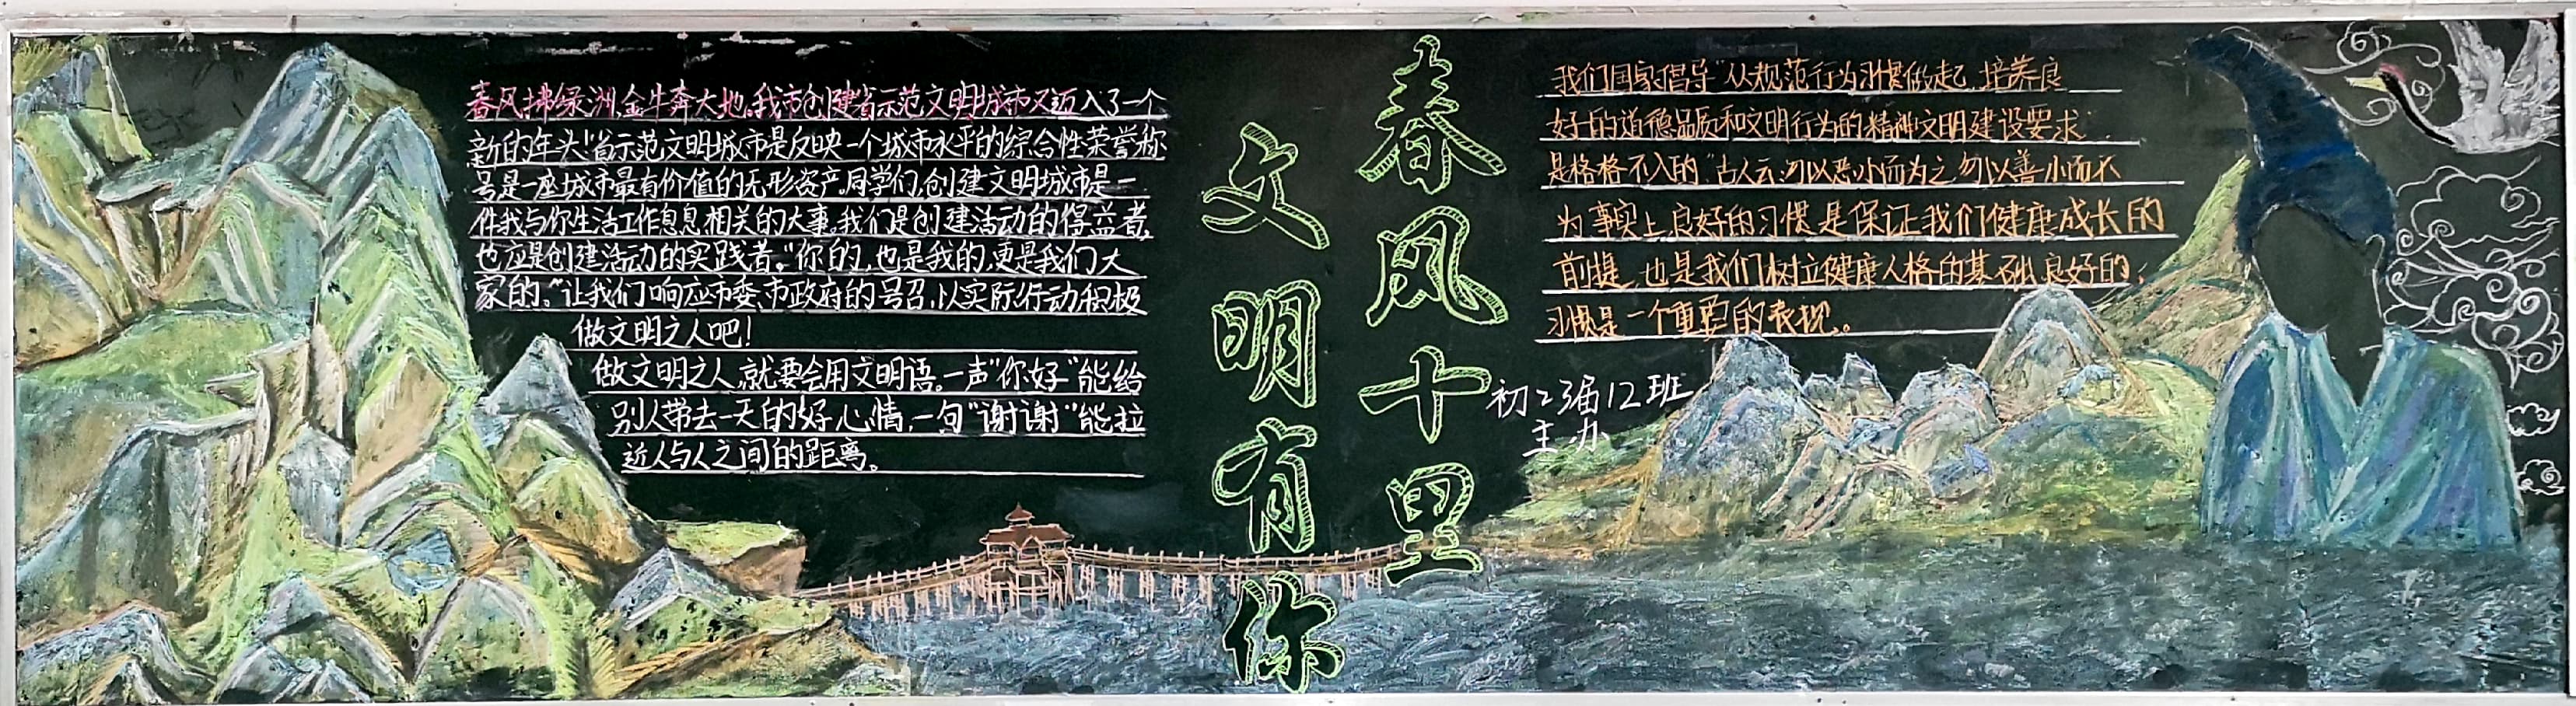 春风拂绿洲,金牛奔大地。我市创建省示范文明城市又迈入了一个
新的年头!省示范文明城市是反映一个城市水平的综合性荣誉称
号是一座城市最有价值的无形资产。同学们,创建文明城市是一
件我与你生活工作息息相关的大事。我们是创建活动的得益者,
也应是创建活动的实践者。“你的,也是我的,更是我们大
家的。”让我们响应市委、市政府的号召,以实际行动积极
做文明之人吧!
做文明之人,就要会用文明语。一声“你好”能给
别人带去一天的好心情,一句“谢谢”能拉
近人与人之间的距离。
春风十里
文明有你
我们国家倡导“从规范行为习惯做起,培养良
好的道德品质和文明行为的精神文明建设要求
是格格不入的“古人云:勿以恶小而为之勿以善小而不
为事实上,良好的习惯是保证我们健康成长的
前提,也是我们树立健康人格的基础,良好的
习惯是一个重要的表现。
初23届12班
主办